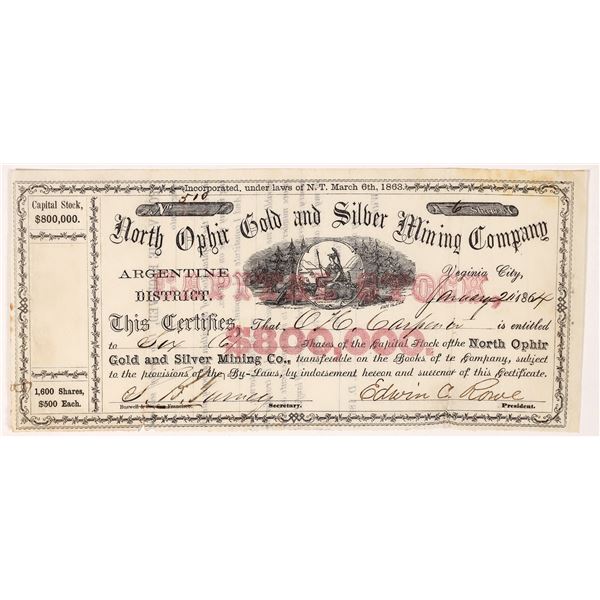 Incorporated, under laws of N. T. March 6th, 1863.
Capital Stock,
$800,000.
No. 510
6 Shares
North Ophir Gold and Silver Mining Company
ARGENTINE
DISTRICT.
Virginia City,
January 1864
CAPITAL STOCK,
$800,000.
This Certifies, That O. H. is entitled
to Six (6) Shares of the Capital Stock of the North Ophir
Gold and Silver Mining Co., transferable on the Books of te Company, subject
to the provisions of the By-Laws, by indorsement hereon and surrenor of this Certificate.
1,600 Shares,
$500 Each.
Edwin C. Rowe
Secretary.
President.